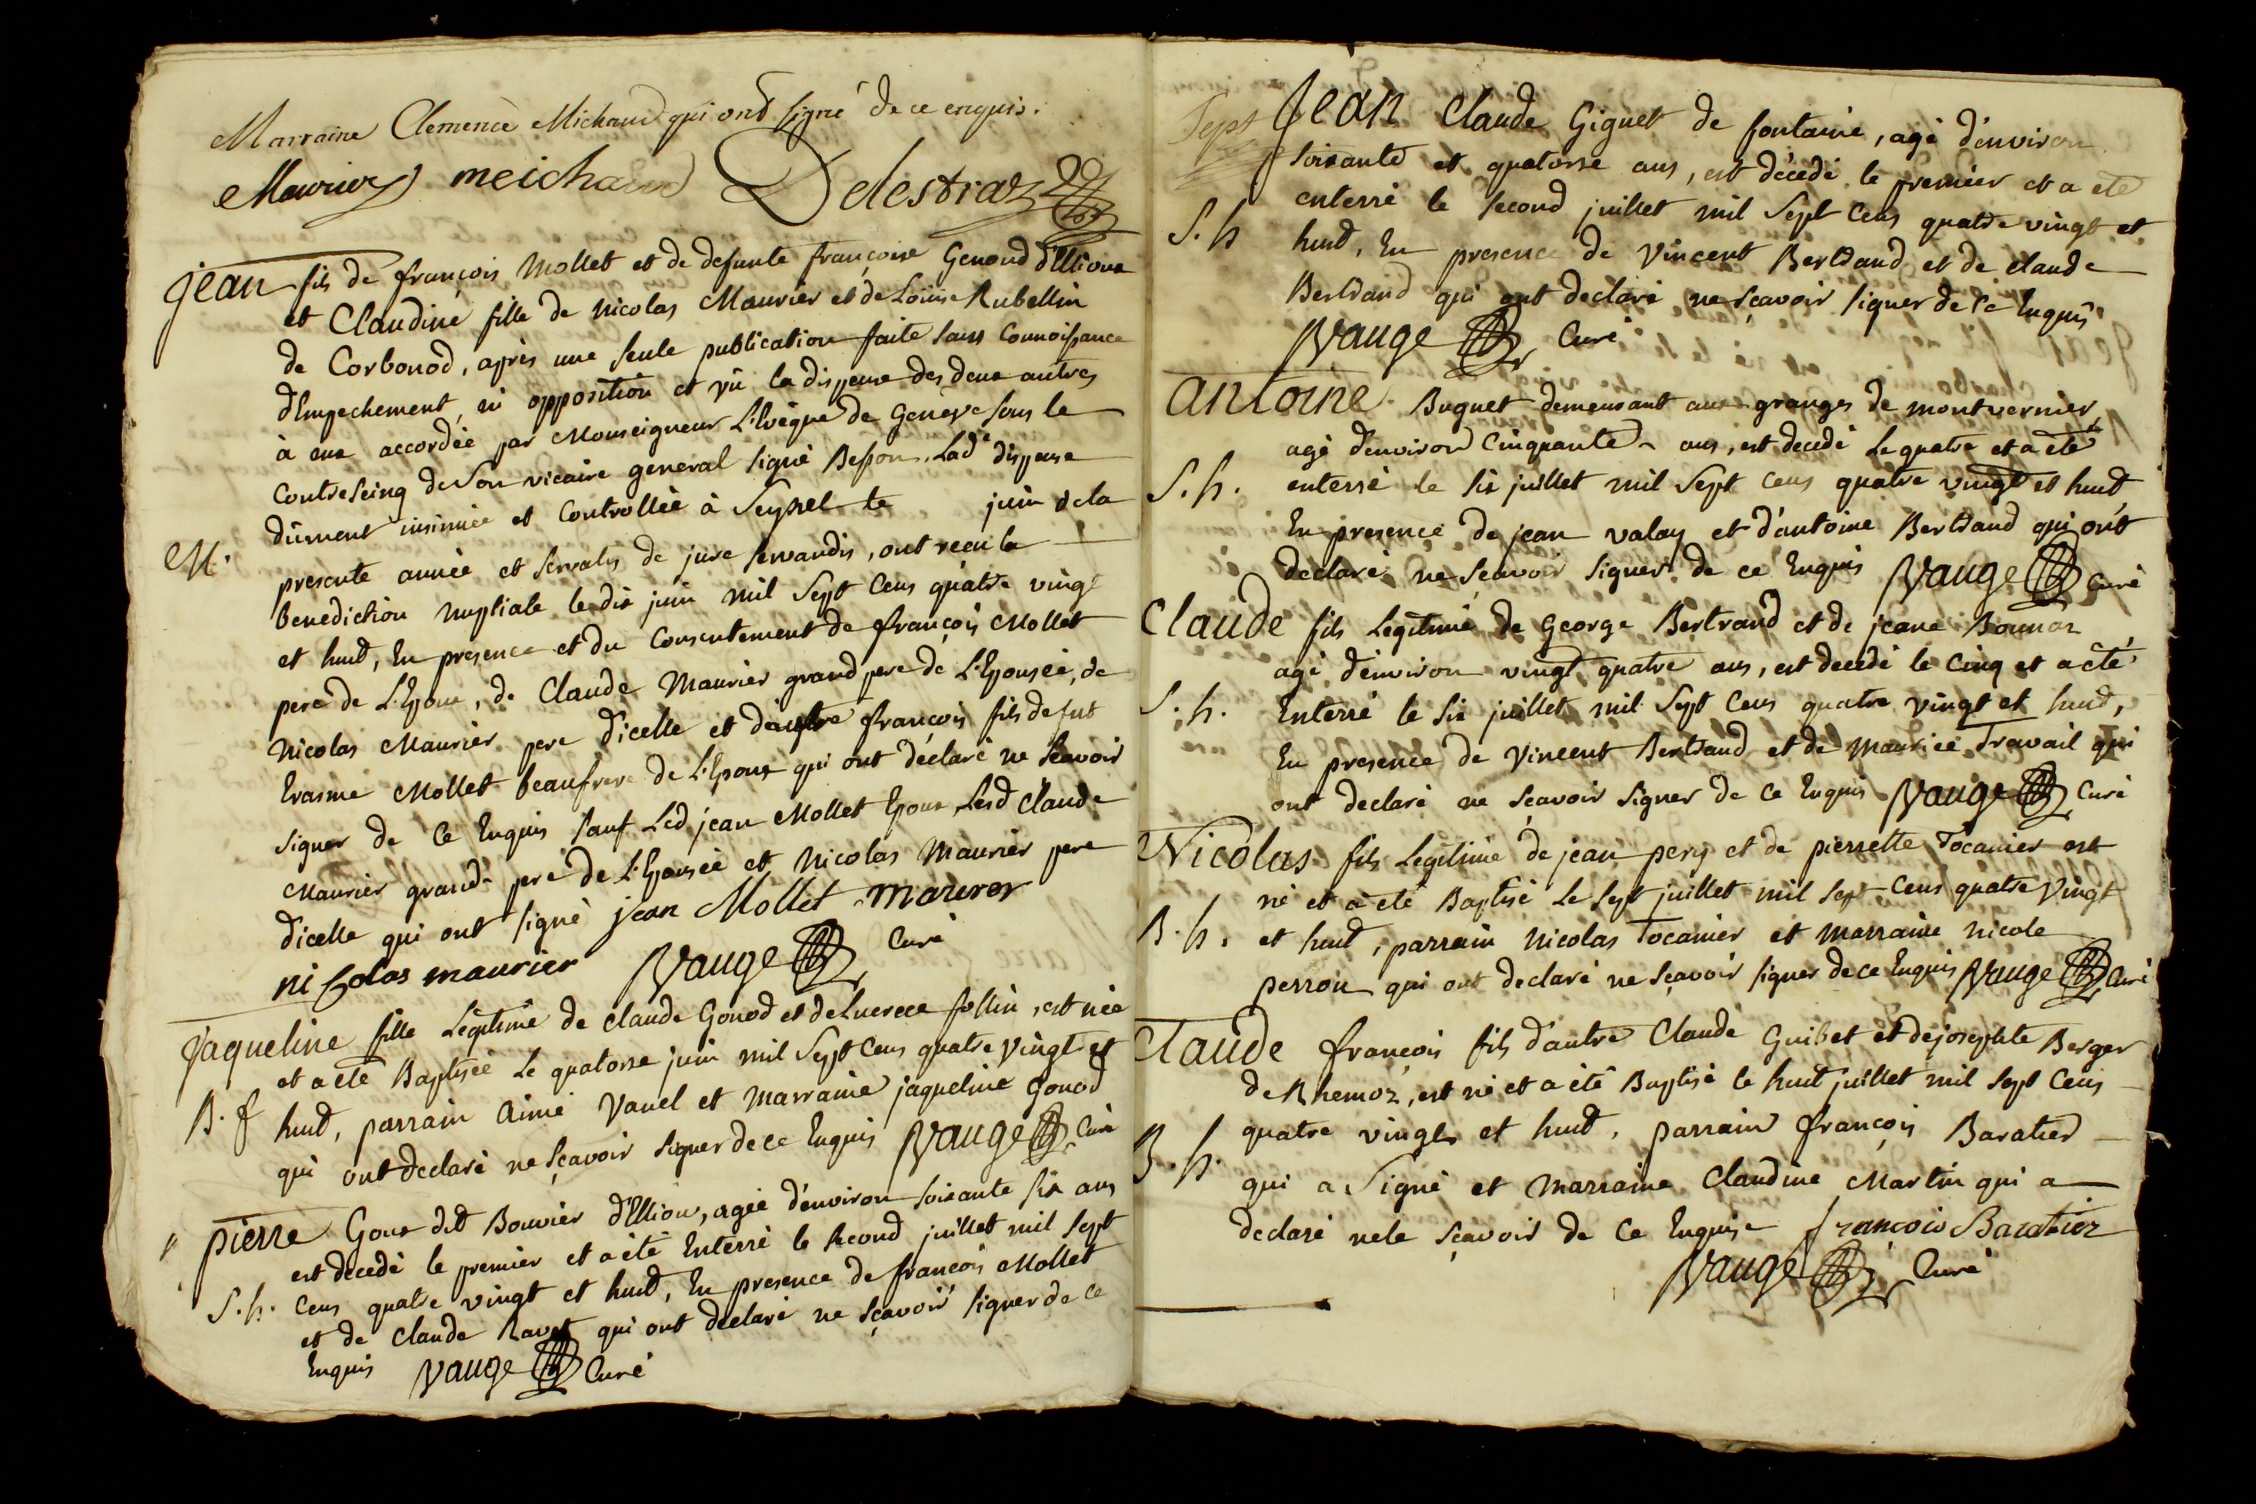 Marraine Clemence Michaud qui ont signé de ce enquis.
Maurier meichaud Delestraz
Jean fils de françois Mollet et de defunte françoise Genoud d'Ilion
et Claudine fille de Nicolas Maurier et de Loüise Rubellin
de Corbonod, après une seule publication faite sans Connoissance
d'Empechement, ni opposition et vû la dispense des deux autres
à eux accordée par Monseigneur L'Evèque de Genève sous le
Contreseing de Son vicaire general signé Besson. Lade dispense
dûment insinuée et Controllée à Seyssel le juin de la
M. presente année et servatis de jure servandis, ont reçu la
benediction nuptiale le dix juin mil Sept Cens quatre vingt
et huit, En presence et du Consentement de françois Mollet
pere de L'Epoux, de Claude Maurier grand pere de L'Epousée, de
Nicolas Maurier pere d'icelle et d'autre françois fils de fut
Erasme Mollet beaufrere de L'Epoux qui ont déclaré ne Sçavoir
signer de Ce Enquis sauf Led jean Mollet Epoux, Lesd Claude
Maurier grand pere de L'Epousée et Nicolas Maurier pere
d'icelle qui ont signé jean Mollet Maurier
nicolas maurier Vauge Curé
Jaqueline fille Légitime de Claude Gonod et de Lucrece follin, est née
et a eté Baptisée Le quatorse juin mil Sept Cens quatre vingt et
B. f huit, parrain Aimé Vanel et Marraine jaqueline Gonod
qui ont declaré ne sçavoir signer de Ce Enquis Vauge Curé
Pierre Goux dit Bouvier d'Ilion, agée d'environ soixante six ans
est decedé le premier et a eté Enterré le second juillet mil Sept
S. h. Cens quatre vingt et huit, En presence de françois Mollet
et de Claude Ravet qui ont declaré ne sçavoir signer de Ce
Enquis Vauge Curé
Sept Jean Claude Giguet de fontaine, agé d'environ
soixante et quatorse ans, est décédé le premier et a eté
S. h enterré le second juillet mil Sept Cens quatre vingt et
huit, En presence de Vincent Bertrand et de Claude
Bertrand qui ont declaré ne sçavoir signer de Ce Enquis
Vauge Curé
Antoine Buguet demeurant aux granges de montvernier
agé d'environ Cinquante ans, est decedé Le quatre et a eté
S. h. enterré le six juillet mil Sept Cens quatre vingt et huit
En presence de jean valay et d'antoine Bertrand qui ont
declaré ne sçavoir signer de ce Enquis Vauge Curé
Claude fils Legitime de George Bertrand et de jeane Bonnaz
agé d'environ vingt quatre ans, est decedé le Cinq et a eté
S. h. Enterré le six juillet mil Sept Cens quatre vingt et huit,
En presence de Vincent Bertrand et de Maurice Travail qui
ont declaré ne sçavoir signer de Ce Enquis Vauge Curé
Nicolas fils Legitime de jean pery et de pierrette Tocanier est
né et a eté Baptisé Le Sept juillet mil Sept Cens quatre vingt
B. h. et huit, parrain Nicolas Tocanier et Marraine Nicole
perron qui ont declaré ne sçavoir signer de ce Enquis Vauge Curé
Claude françois fils d'autre Claude Guibet et de josephte Berger
de Rhemoz, est né et a été Baptisé le huit juillet mil Sept Cens
quatre vingts et huit, parrain françois Baratier
B. h. qui a Signé et Marraine Claudine Martin qui a
declaré ne le sçavoir de Ce Enquise françois Baratier
Vauge Curé